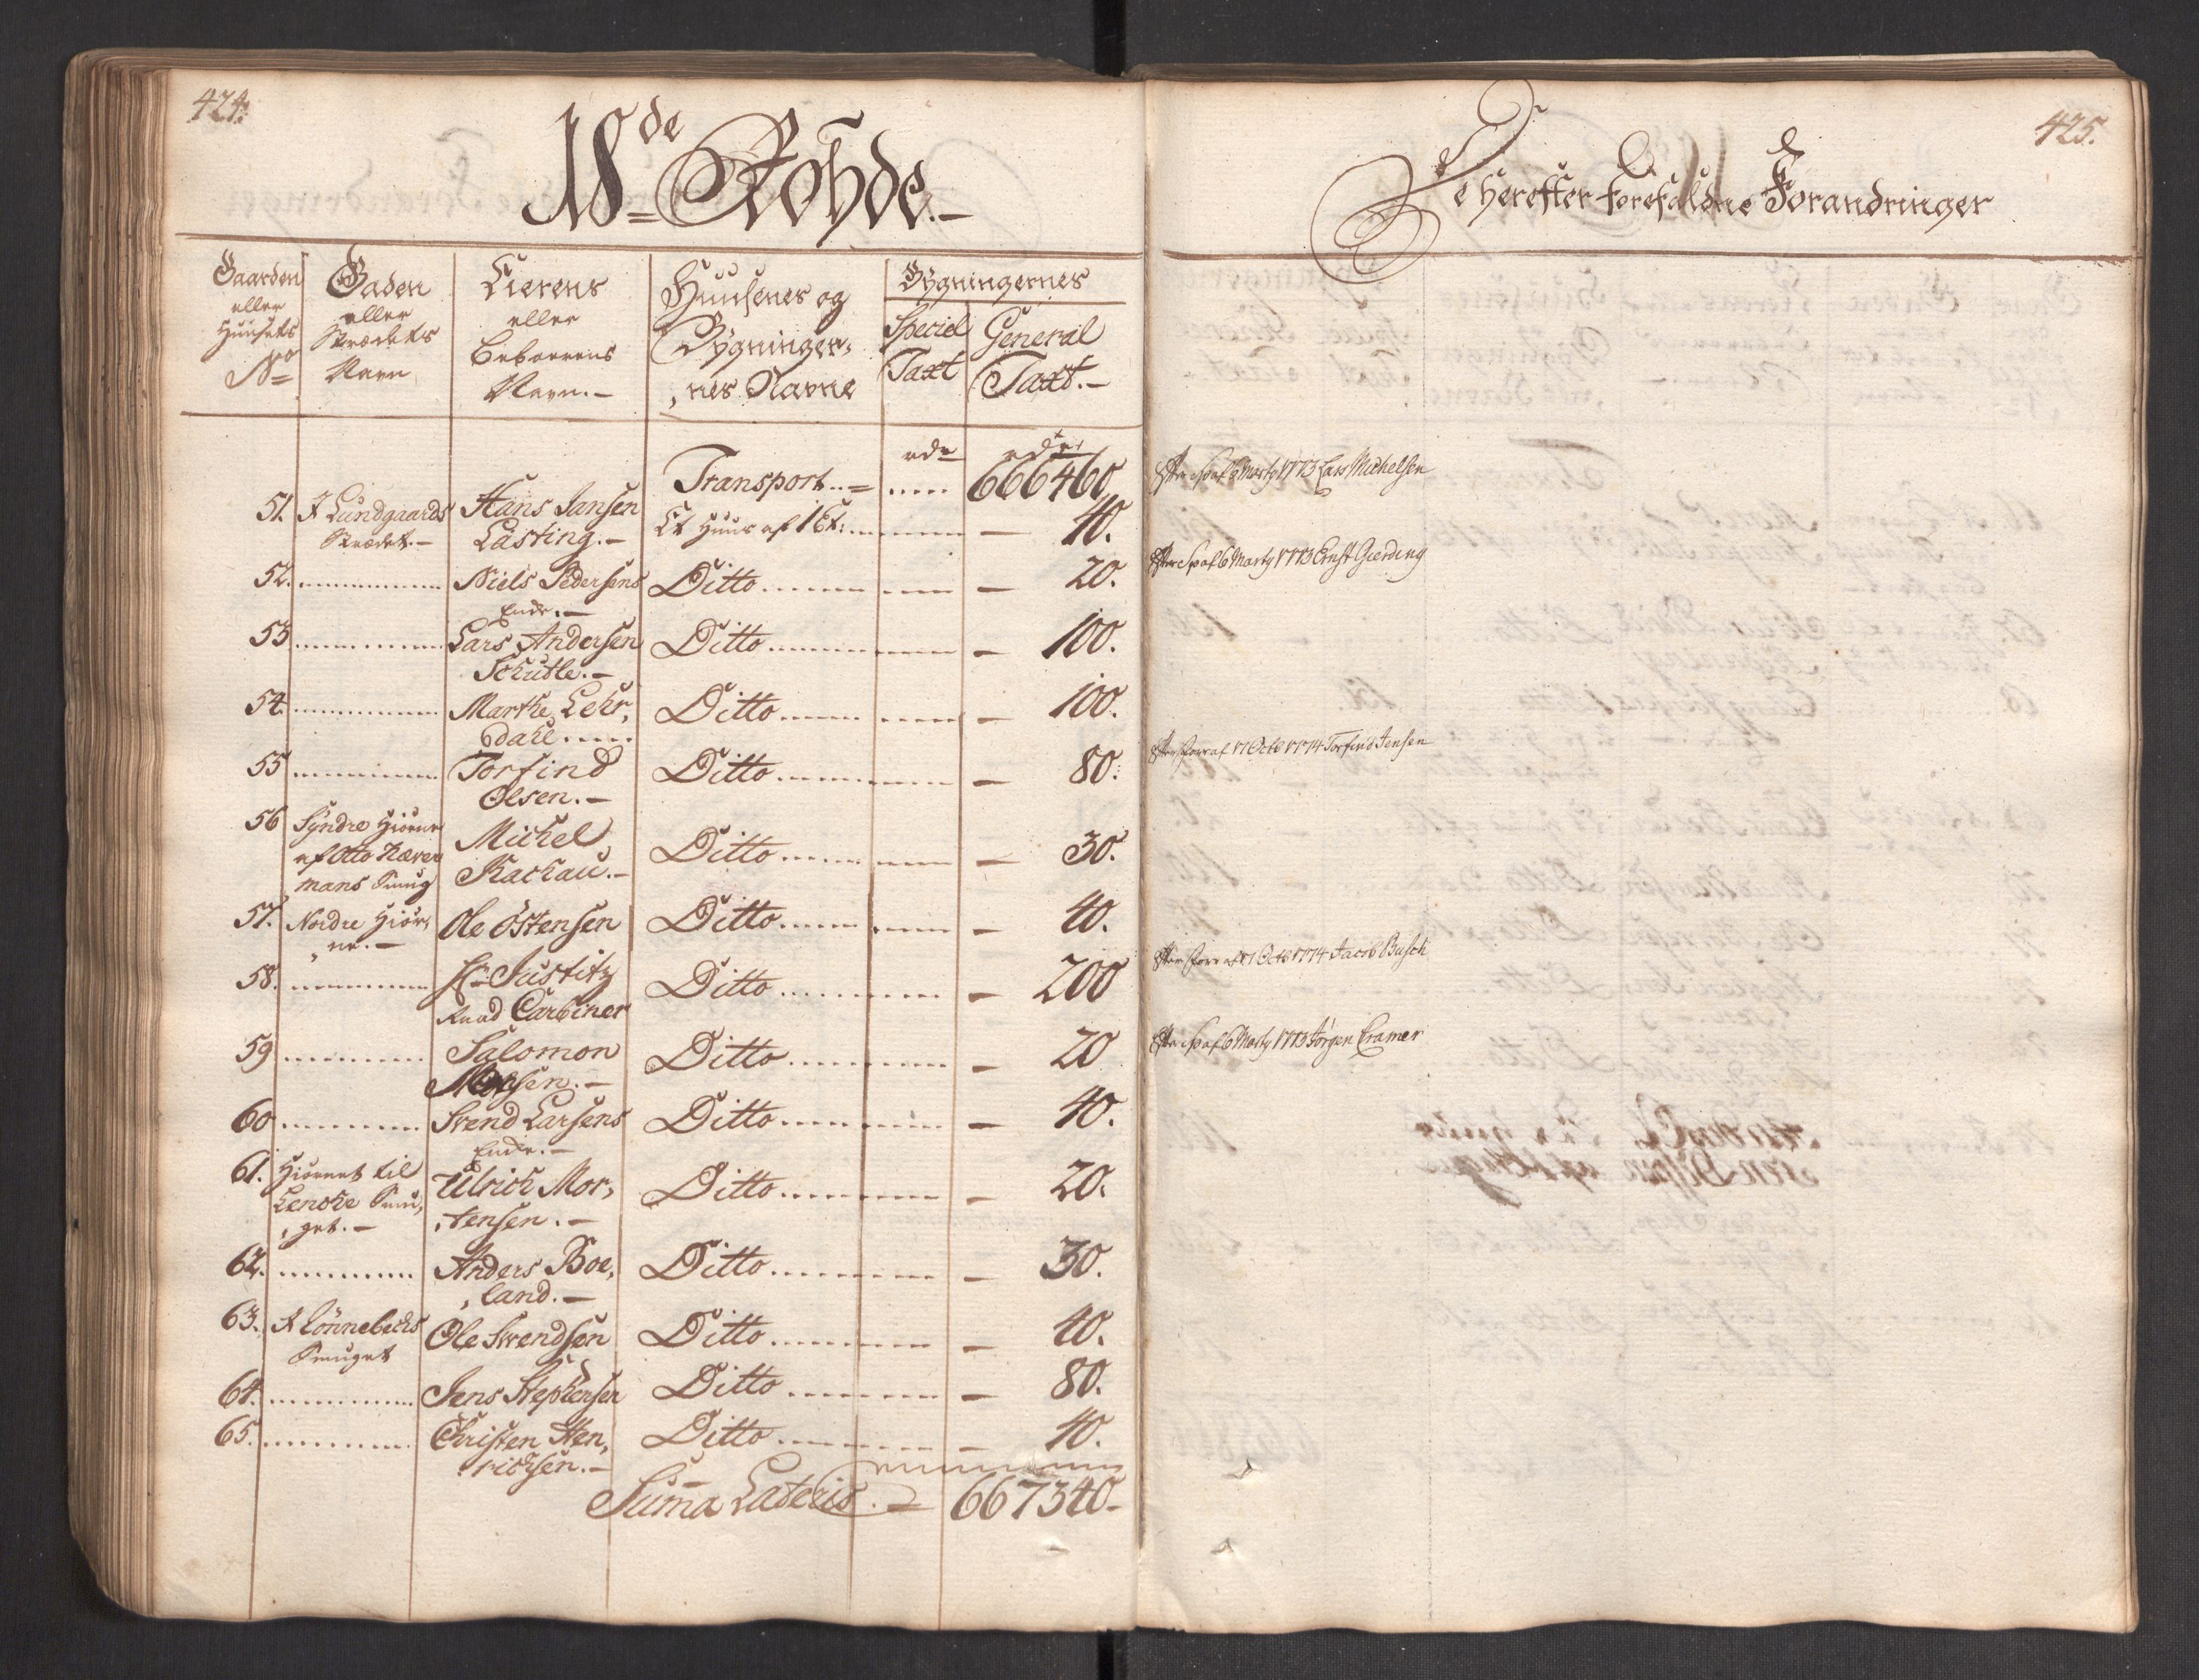 424.
18de Rohde.
Gaarden eller Huusets No
Gaden eller Strædets Navn
Eierens eller Beboerens Navn.
Huusenes og Bygninger, nes Navne
Bygningernes
Speciel Taxt
General Taxt.
rdr rdr
Transport.. 666460
51. I Lundgaards Hans Jansen Et Huus af 1 Et: 40.
Strædet. Lasting.
52. Niels Pedersens Ditto 20.
Enke.
53 Lars Andersen Ditto 100.
Schutle.
54. Marthe Lehr, Ditto 100.
dahl
55 Torfind Ditto 80.
Olsen.
56 Syndre Hiørne Michel Ditto 30.
af Otto Kæver
mans Smug Kachau.
57. Nordre Hiør, Ole Östensen Ditto 40.
ne.
58. Hr Justitz Ditto 200
Raad Carbiner
59 Salomon Ditto 20
Monsen.
60 Svend Larsens Ditto 40.
Enke.
61. Hiørnet til Ulrich Mor, Ditto 20.
Lenche Smu, tensen.
get.
62. Anders Boe, Ditto 30.
land.
63. I Lönnebechs Ole Svendsen Ditto 40.
Smuget
64. Jens Stephensen Ditto 80.
65. Christen Hen, Ditto 40.
richsen.
Suma Lateris. 667340
425.
De herefter forefaldne Forandringer
6 Marty 1773 Lars Michelsen
6 Marty 1773 Ernst Gierding
17 Octb 1774 Torfind Jensen
17 Octb 1774 Jacob Busch
6 Marty 1773 Jörgen Cramer